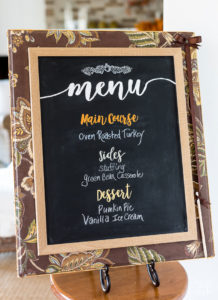 menu
Main Course
Oven Roasted Turkey
sides
stuffing
Green Bean Casserole
Dessert
Pumpkin Pie
Vanilla Ice Cream